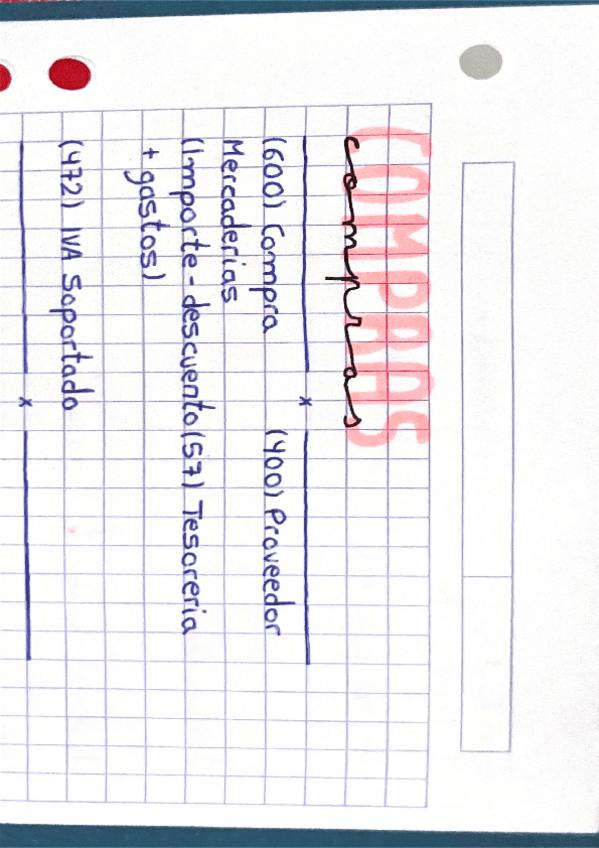 COMPRAS
compras
x
(600) Compra (400) Proveedor
Mercaderias
(Importe - descuento (57) Tesoreria
+ gastos)
(472) IVA Soportado
x